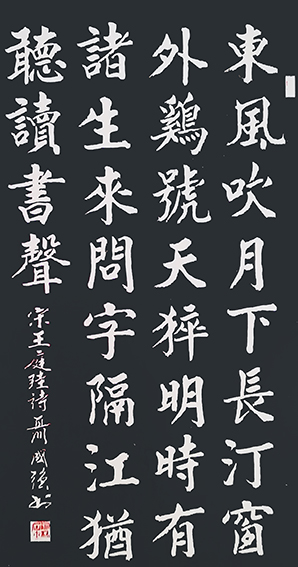 東風吹月下長汀窗
外鷄號天猝明時有
諸生來問字隔江猶
聽讀書聲
宋王庭珪詩聶國強書